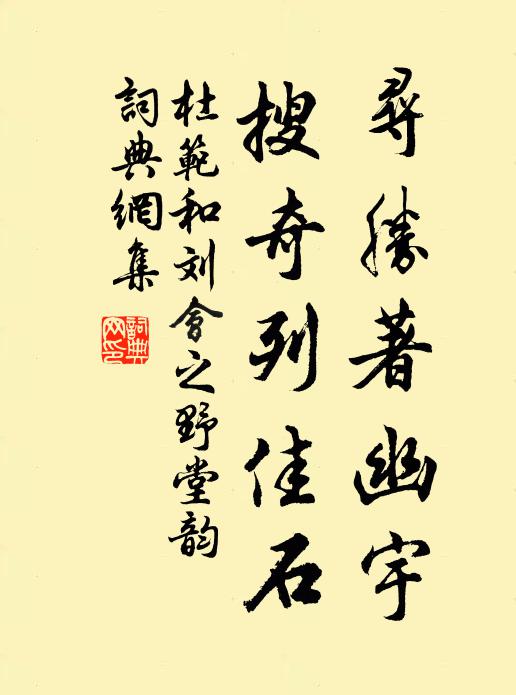 尋勝著幽宇
搜奇列佳石
杜範和刘會之野堂韵
詞典網集
詞典網印